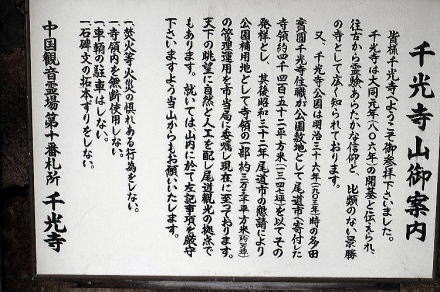 千光寺山御案内
皆様千光寺へようこそ御参拝下さいました。
千光寺は大同元年(八〇六年)の開基と伝えられ、
往古から霊験あらたかな信仰と、比類のない景勝
の寺として広く知られております。
又、千光寺公園は明治三十六年(一九〇三年)時の多田
實圓千光寺住職が公園敷地として尾道市へ寄付した
寺領約四千四百五十二平方米(一三四七坪)を以てその
発祥とし、其後昭和三十二年尾道市の懇請により
公園補用地として寺領の一部
の管理運用を市当局に委嘱し現在に至っております。
天下の眺望に自然と人工を配し尾道観光の拠点で
もあります。就いては山内に於て左記事項を厳守
下さいますよう当山からもお願いいたします。
一、焚火等火災の惧れある行為をしない。
一、寺領内を無断使用しない。
一、車輌の駐車はしない。
一、石碑文の拓本ずりをしない。
中国観音霊場第十番札所 千光寺